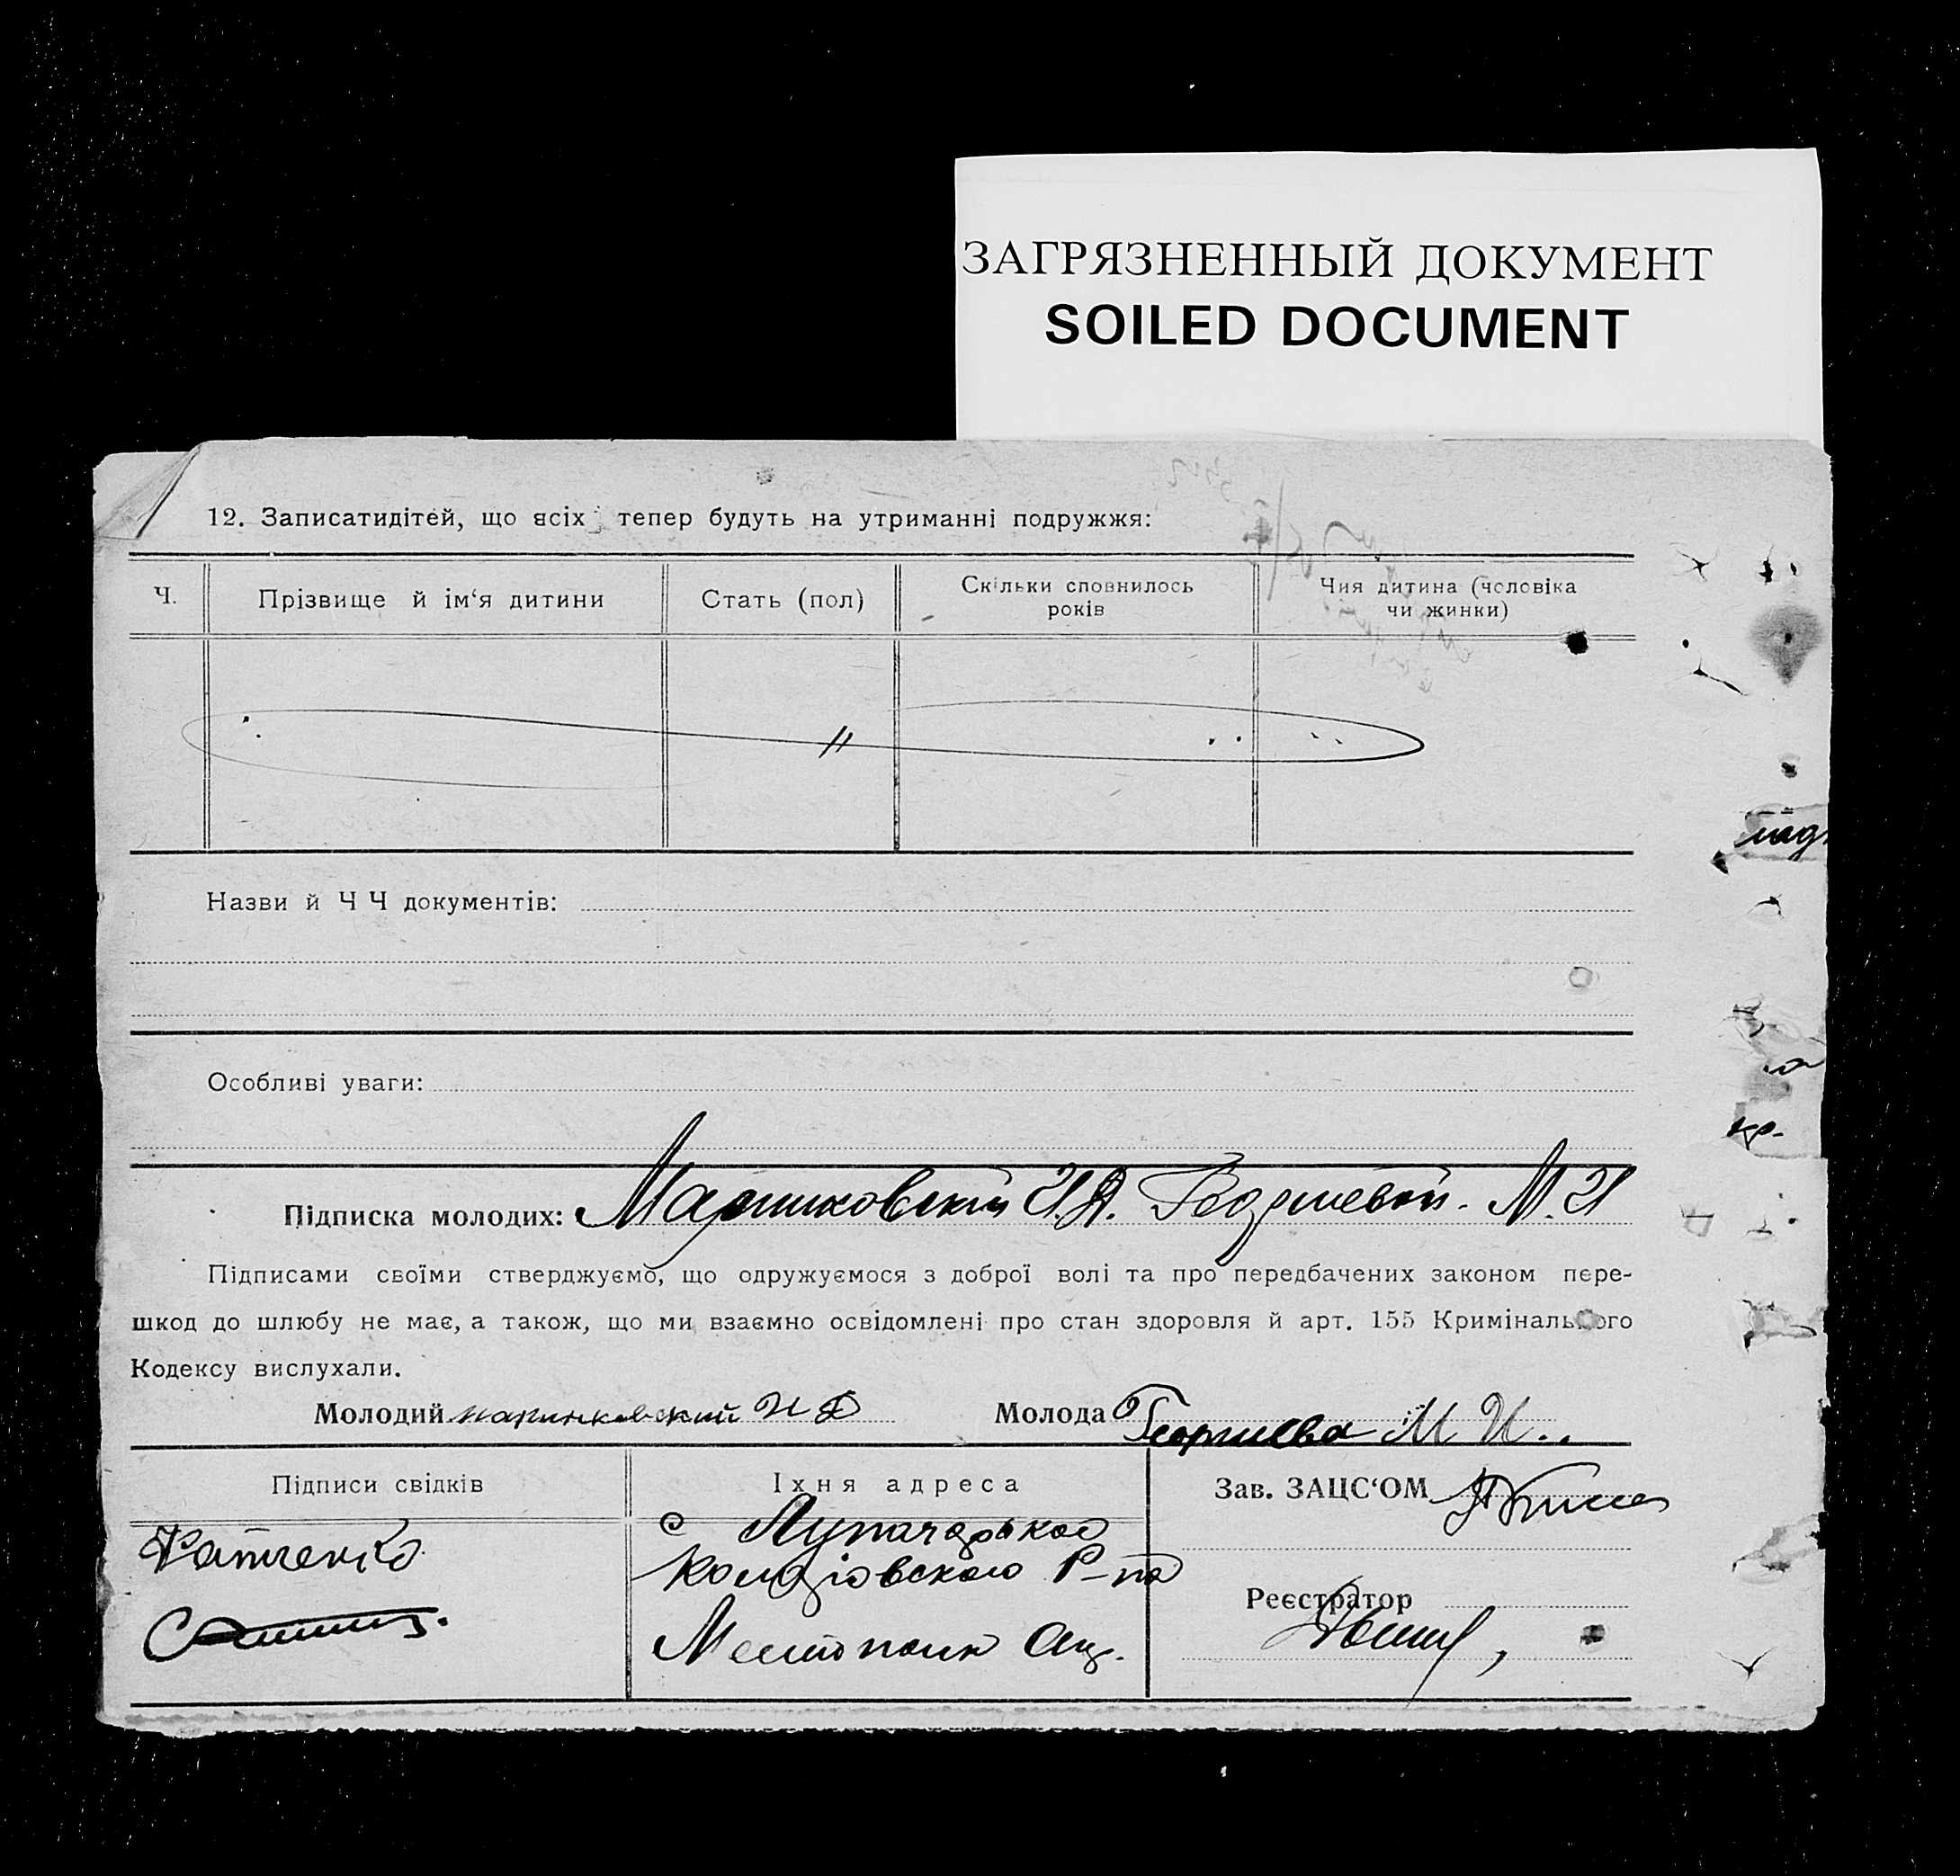 ЗАГРЯЗНЕННЫЙ ДОКУМЕНТ
SOILED DOCUMENT
12. Записатидітей, що всіх тепер будуть на утриманні подружжя:
Ч.
Прізвище й ім‘я дитини
Стать (пол)
Скільки сповнилось
років
Чия дитина (чоловіка
чи жинки)
Назви й Ч Ч документів:
Особливі уваги:
Підписка молодих: И.Д. М. И
Підписами своїми стверджуємо, що одружуємося з доброї волі та про передбачених законом пере-
шкод до шлюбу не має, а також, що ми взаємно освідомлені про стан здоровля й арт. 155 Кримінального
Кодексу вислухали.
Молодий маринковский И Д
Молода Георгиева М И.
Підписи свідків
Їхня адреса
с
Р-на
Зав. ЗАЦС‘ОМ
Реєстратор
кр.